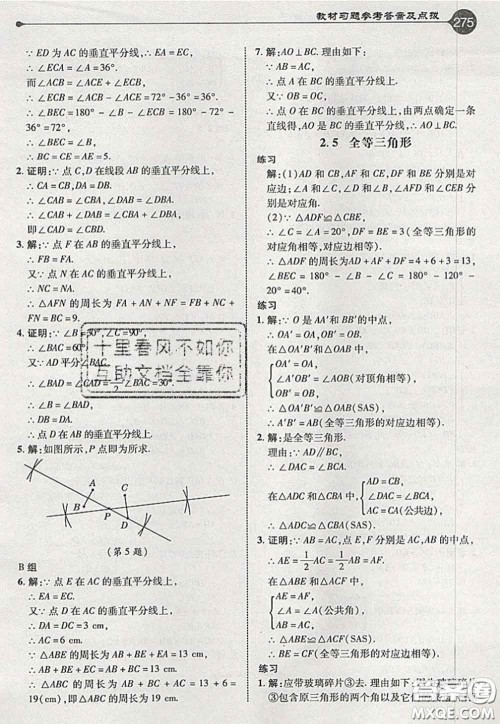 教材习题参考答案及点拨 275
∵ED 为 AC 的垂直平分线,
∴∠ECA=∠A=36°.
而∠ACB=72°,
∴∠BCE=∠ACB-∠ACE=72°-36°=36°.
∴∠BEC=180°-∠B-∠BCE=180°-72°-
36°=72°,
∴∠BEC=∠B.
∴BC=CE=AE=5.
2. 证明:∵点 C,D 在线段 AB 的垂直平分线上,
∴CA=CB,DA=DB.
∴∠CAB=∠CBA,∠DAB=∠DBA.
即∠CAD=∠CBD.
3. 解:∵点 F 在 AB 的垂直平分线上,
∴FB=FA.
又∵点 N 在 AC 的垂直平分线上,
∴NA=NC.
∴△AFN 的周长为 FA+AN+FN=FB+NC+
FN=BC=9.
4. 证明:∵∠B=30°,∠C=90°,
∴∠BAC=60°.
又∵∠BAD=∠CAD=
∴∠B=∠BAD,
∴DB=DA.
∴点 D 在 AB 的垂直平分线上.
5. 解:如图所示,P 点即为所求.
A
C
B
P
D
(第 5 题)
B 组
6. 解:∵点 E 在 AC 的垂直平分线上,
∴EA=EC.
又∵点 D 在 AC 的垂直平分线上,
∴DA=DC.
又∵AD=3 cm,
∴AC=6 cm.
∵△ABE 的周长为 AB+BE+EA=13 cm,
∴AB+BE+EC=13 cm.
∴△ABC 的周长为 AB+BE+EC+AC=13+6=
19(cm),即△ABC 的周长为 19 cm.
7. 解:AO⊥BC. 理由如下:
∵AB=AC,∴点 A 在 BC 的垂直平分线上.
又∵OB=OC,
∴点 O 在 BC 的垂直平分线上,由两点确定一条
直线得:AO⊥BC.
2.5 全等三角形
练习
解:(1)AD 和 CB,AF 和 CE,DF 和 BE 分别是对
应边;∠A 和∠C,∠D 和∠B,∠AFD 和∠CEB
分别是对应角.
(2)∵△ADF≌△CBE,
∴∠C=∠A=20°,DF=BE=3(全等三角形的
对应角相等,对应边相等).
∴△ADF 的周长为 AD+AF+DF=4+6+3=13,
∠BEC=180°-∠B-∠C=180°-32°-20°=
128°.
练习
1. 解:∵O 是 AA′和 BB′的中点,
∴OA′=OA,OB′=OB.
在△OA′B′和△OAB 中,
OA′=OA,
∠A′OB′=∠AOB(对顶角相等),
OB′=OB,
∴△OA′B′≌△OAB(SAS).
∴A′B′=AB(全等三角形的对应边相等).
2. 解:是全等三角形.
理由:∵AD//BC,
∴∠DAC=∠BCA.
在△ADC 和△CBA 中
AD=CB,
∠DAC=∠BCA,
AC=CA(公共边),
∴△ADC≌△CBA(SAS).
3. 证明:∵AB=AC,点 E,F 分别是 AC,AB 的中点,
∴AE=1/2AC=1/2AB=AF.
在△ABE 和△ACF 中
AE=AF,
∠A=∠A(公共角),
AB=AC,
∴△ABE≌△ACF(SAS).
∴BE=CF(全等三角形的对应边相等).
练习
1. 解:应带玻璃碎片③去. 理由如下:
③包含原三角形的两个角以及它
十里春风不如你
互助文档全靠你
答案圈
MXQE.COM